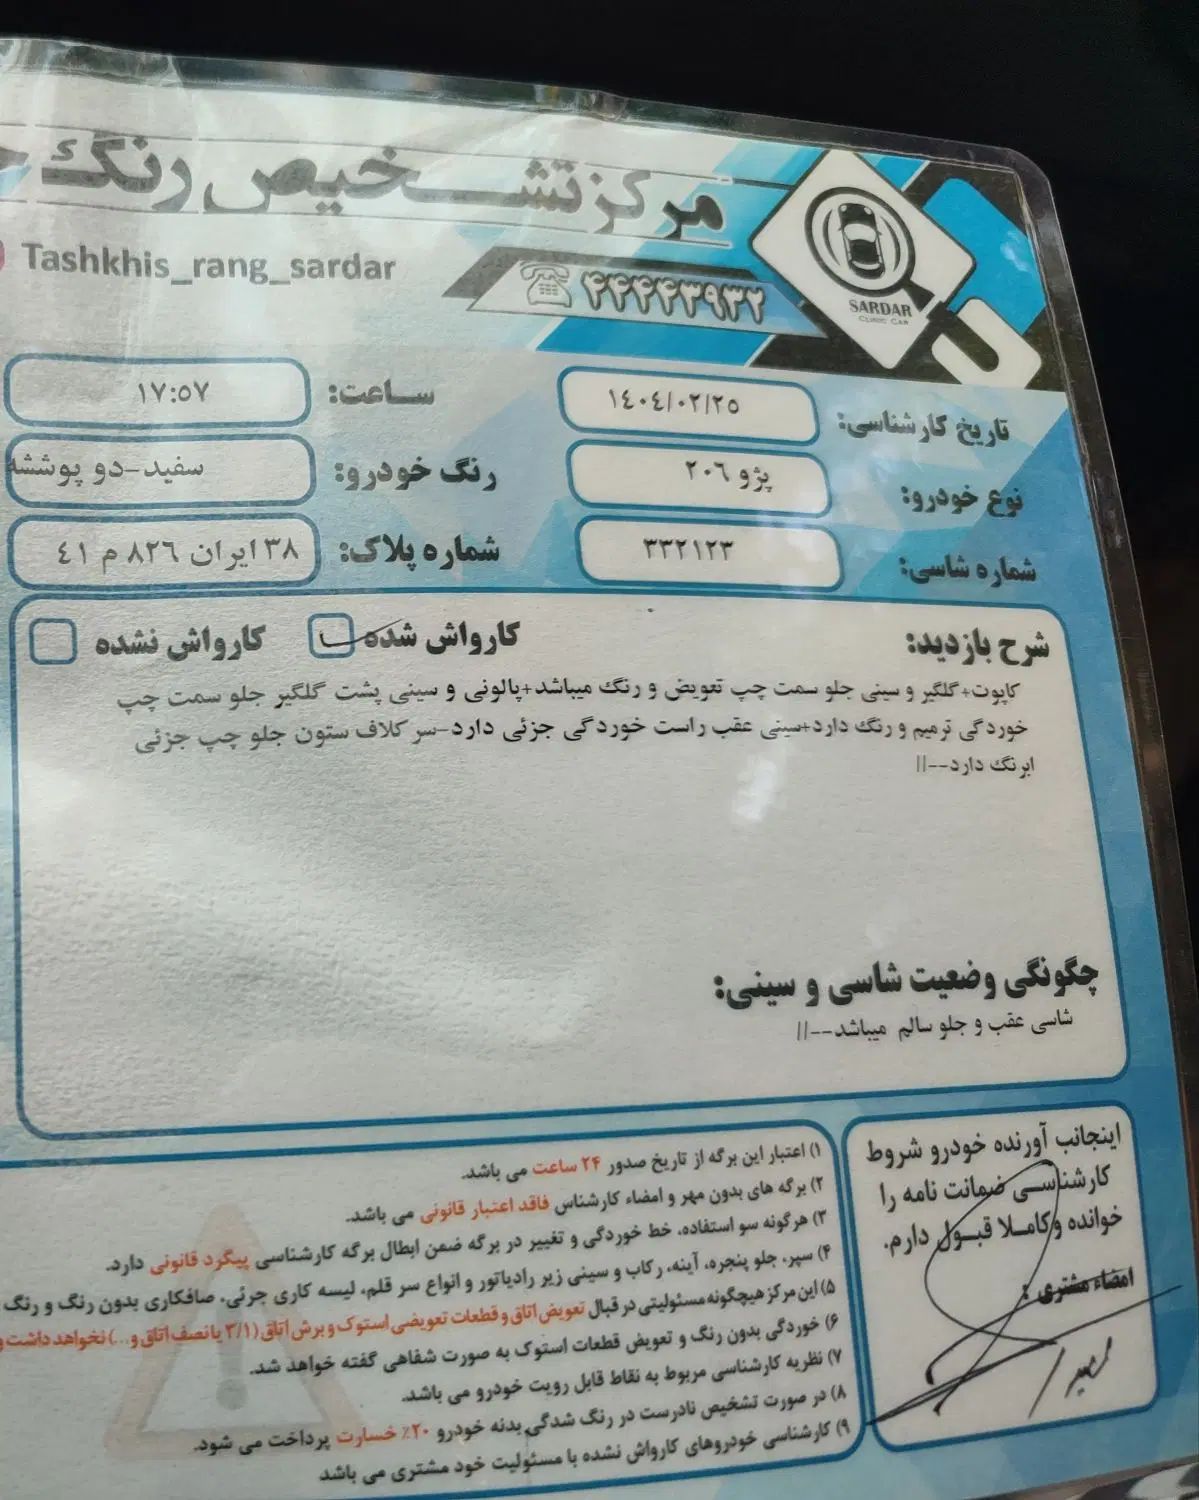 مرکز تشخیص رنگ
Tashkhis_rang_sardar
۴۴۴۴۳۹۳۲
SARDAR
CLINIC CAR
تاریخ کارشناسی: ١٤٠٤/٠٢/٢٥ ساعت: ١٧:٥٧
نوع خودرو: پژو ٢٠٦ رنگ خودرو: سفید-دو پوششه
شماره شاسی: ٣٣٢١٢٣ شماره پلاک: ٣٨ ایران ٨٢٦ م ٤١
شرح بازدید: کارواش شده کارواش نشده
کاپوت+گلگیر و سینی جلو سمت چپ تعویض و رنگ میباشد+پالونی و سینی پشت گلگیر جلو سمت چپ
خوردگی ترمیم و رنگ دارد+سینی عقب راست خوردگی جزئی دارد-سر کلاف ستون جلو چپ جزئی
ابرنگ دارد--//
چگونگی وضعیت شاسی و سینی:
شاسی عقب و جلو سالم میباشد--//
اینجانب آورنده خودرو شروط
کارشناسی ضمانت نامه را
خوانده و کاملا قبول دارم.
امضاء مشتری :
۱) اعتبار این برگه از تاریخ صدور ۲۴ ساعت می باشد.
۲) برگه های بدون مهر و امضاء کارشناس فاقد اعتبار قانونی می باشد.
۳) هرگونه سو استفاده، خط خوردگی و تغییر در برگه ضمن ابطال برگه کارشناسی پیگرد قانونی دارد.
۴) سپر، جلو پنجره، آینه، رکاب و سینی زیر رادیاتور و انواع سر قلم، لیسه کاری جرئی، صافکاری بدون رنگ و رنگ
۵) این مرکز هیچگونه مسئولیتی در قبال تعویض اتاق و قطعات تعویضی استوک و برش اتاق (۳/۱ یا نصف اتاق و...) نخواهد داشت و
۶) خوردگی بدون رنگ و تعویض قطعات استوک به صورت شفاهی گفته خواهد شد.
۷) نظریه کارشناسی مربوط به نقاط قابل رویت خودرو می باشد.
۸) در صورت تشخیص نادرست در رنگ شدگی بدنه خودرو ۲۰٪ خسارت پرداخت می شود.
۹) کارشناسی خودروهای کارواش نشده با مسئولیت خود مشتری می باشد